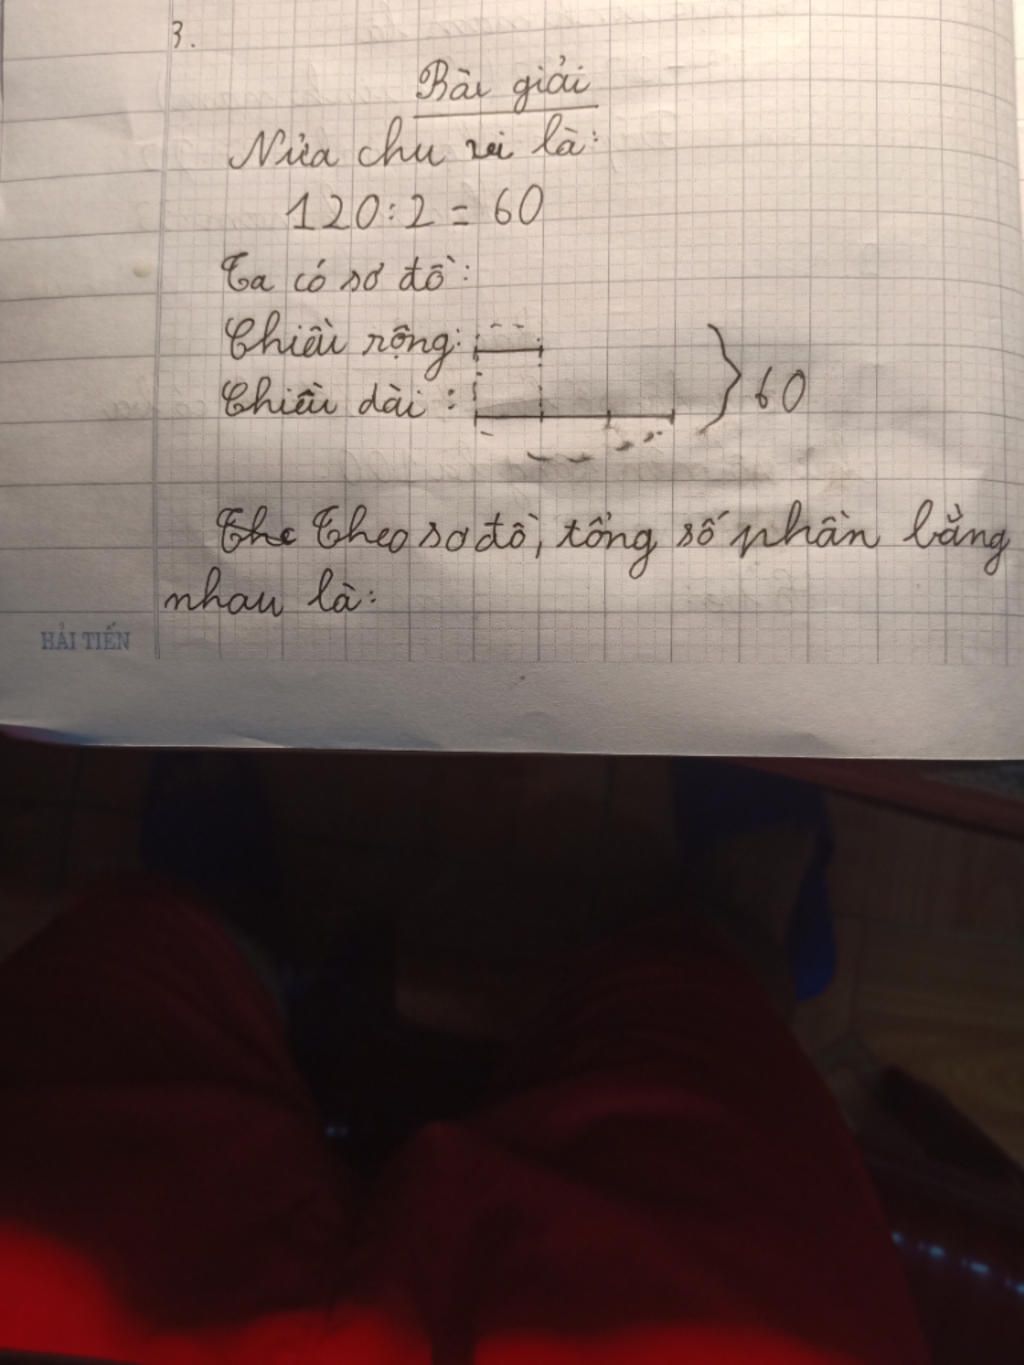 3.
Bài giải
Nửa chu vi là:
120:2 = 60
Ta có sơ đồ:
Chiều rộng:
Chiều dài :
60
The Theo sơ đồ, tổng số phần bằng
nhau là:
HẢI TIẾN